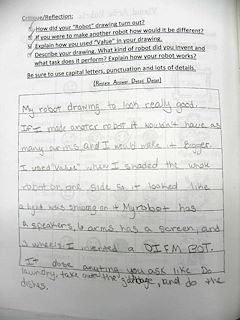 Critique/Reflection:
How did your "Robot" drawing turn out?
If you were to make another robot how would it be different?
Explain how you used "Value" in your drawing.
Describe your drawing. What kind of robot did you invent and
what task does it perform? Explain how your robot works?
Be sure to use capital letters, punctuation and lots of details.
(Review Answer Detail Detail)
My robot drawing to look really good.
If I made another robot it wouldn't have as
many arms, and I would make it bigger.
I used "Value" when I shaded the whole
robot on one side so it looked like
a light was shining on it My robot has
a speakers, 6 arms has a screen, and
wheels I invented a D.I.F.M BOT.
It dose anyting you ask like Do
laundry, take out the garbage, and do the
dishes.